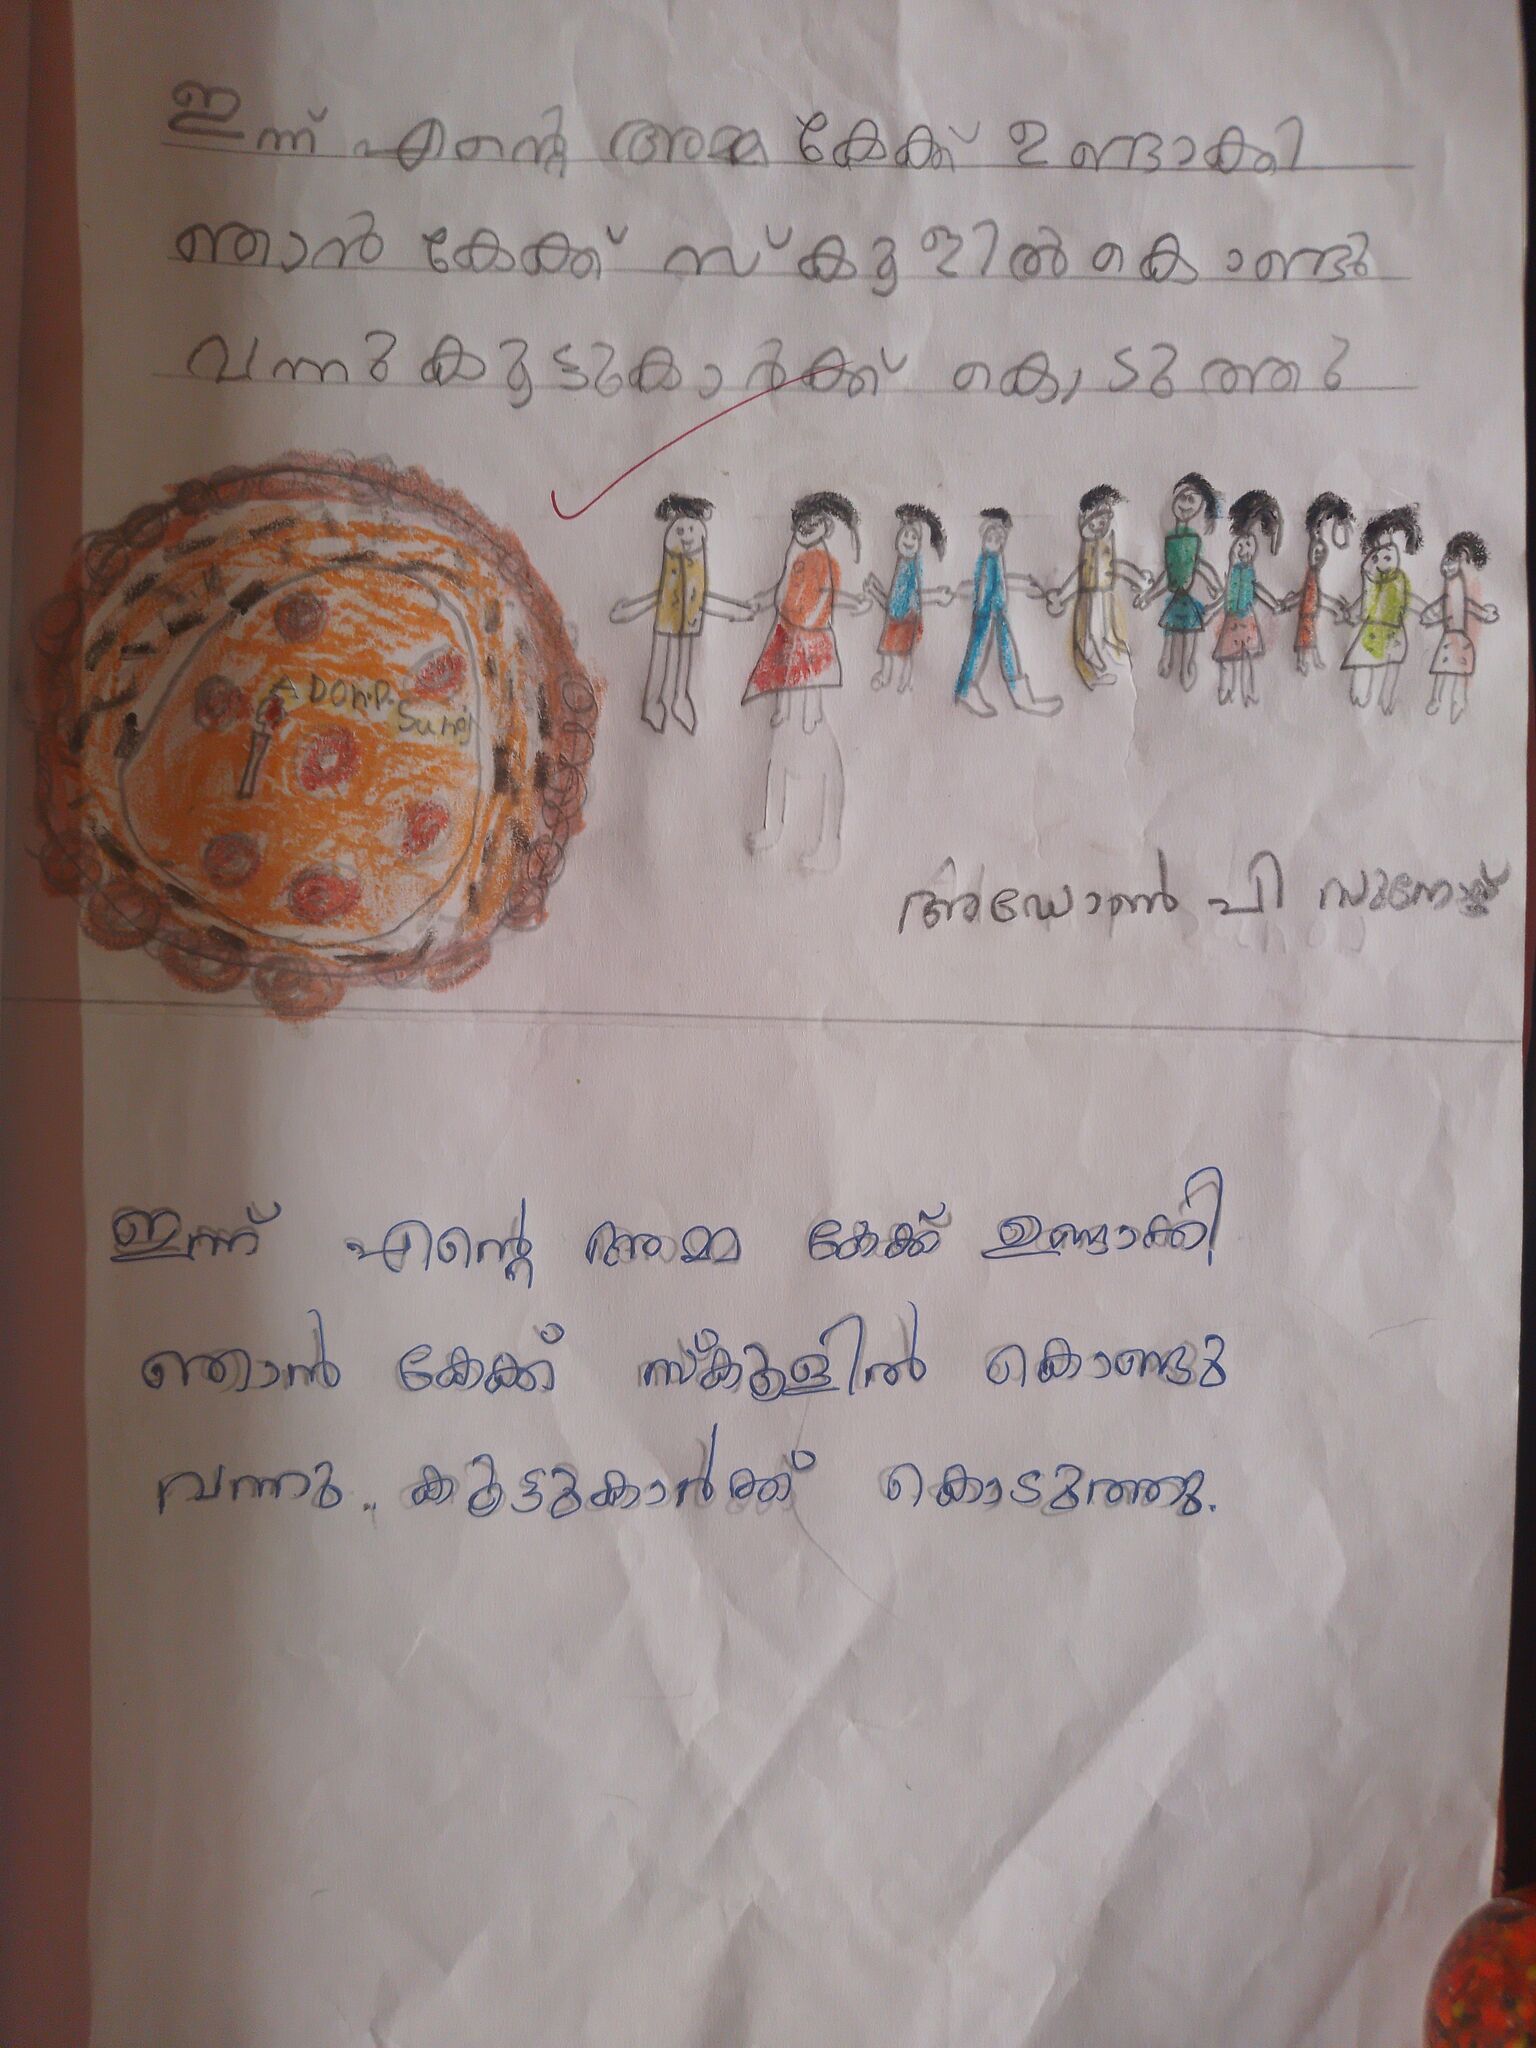 ഇന്ന് എന്റെ അമ്മ കേക്ക് ഉണ്ടാക്കി
ഞാൻ കേക്ക് സ്കൂളിൽ കൊണ്ടു
വന്നു കൂട്ടുകാർക്ക് കൊടുത്തു
ADON.P.
Sunoj
അഡോൺ പി സുനോജ്
ഇന്ന് എന്റെ അമ്മ കേക്ക് ഉണ്ടാക്കി
ഞാൻ കേക്ക് സ്കൂളിൽ കൊണ്ടു
വന്നു.. കൂട്ടുകാർക്ക് കൊടുത്തു.